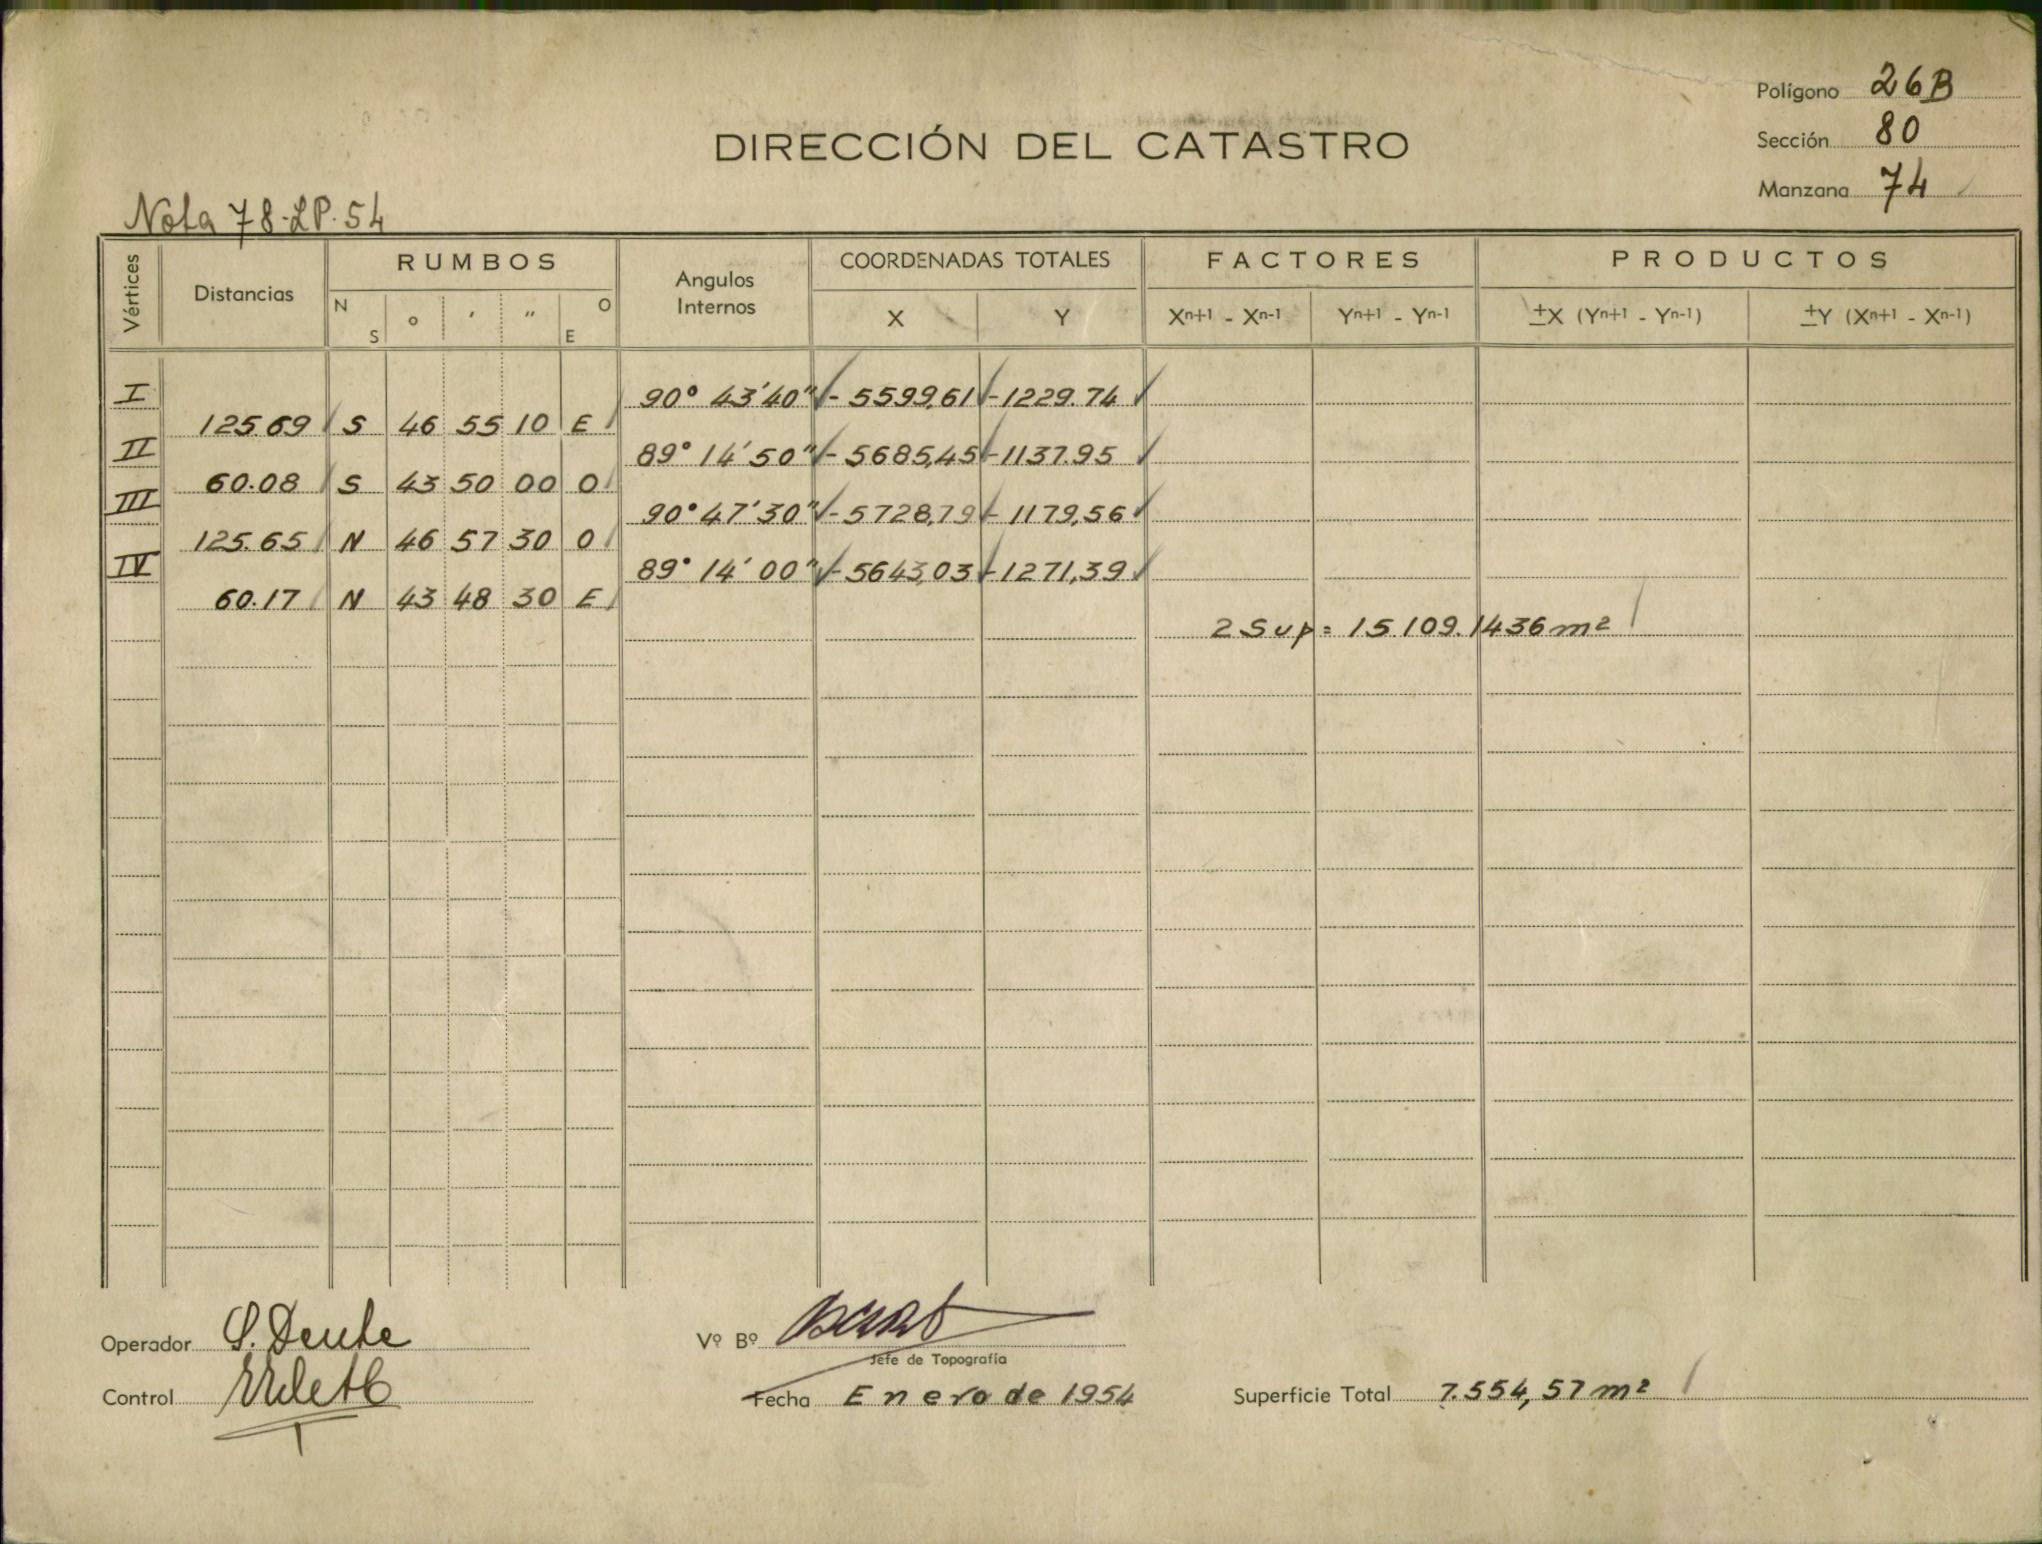 Polígono 26B
Sección 80
Manzana 74
DIRECCIÓN DEL CATASTRO
Nota 78-LP-54
Vértices Distancias RUMBOS Angulos Internos COORDENADAS TOTALES FACTORES PRODUCTOS
N S ° ' " O E X Y Xn+1 - Xn-1 Yn+1 - Yn-1 ±X (Yn+1 - Yn-1) ±Y (Xn+1 - Xn-1)
I 90° 43' 40" - 5599,61 - 1229.74
125.69 S 46 55 10 E
II 89° 14' 50" - 5685,45 - 1137.95
60.08 S 43 50 00 O
III 90° 47' 30" - 5728,79 - 1179,56
125.65 N 46 57 30 O
IV 89° 14' 00" - 5643,03 - 1271,39
60.17 N 43 48 30 E
2 Sup = 15.109.1436 m²
Operador
Vº Bº
Jefe de Topografía
Control
Fecha Enero de 1954
Superficie Total 7.554,57 m²